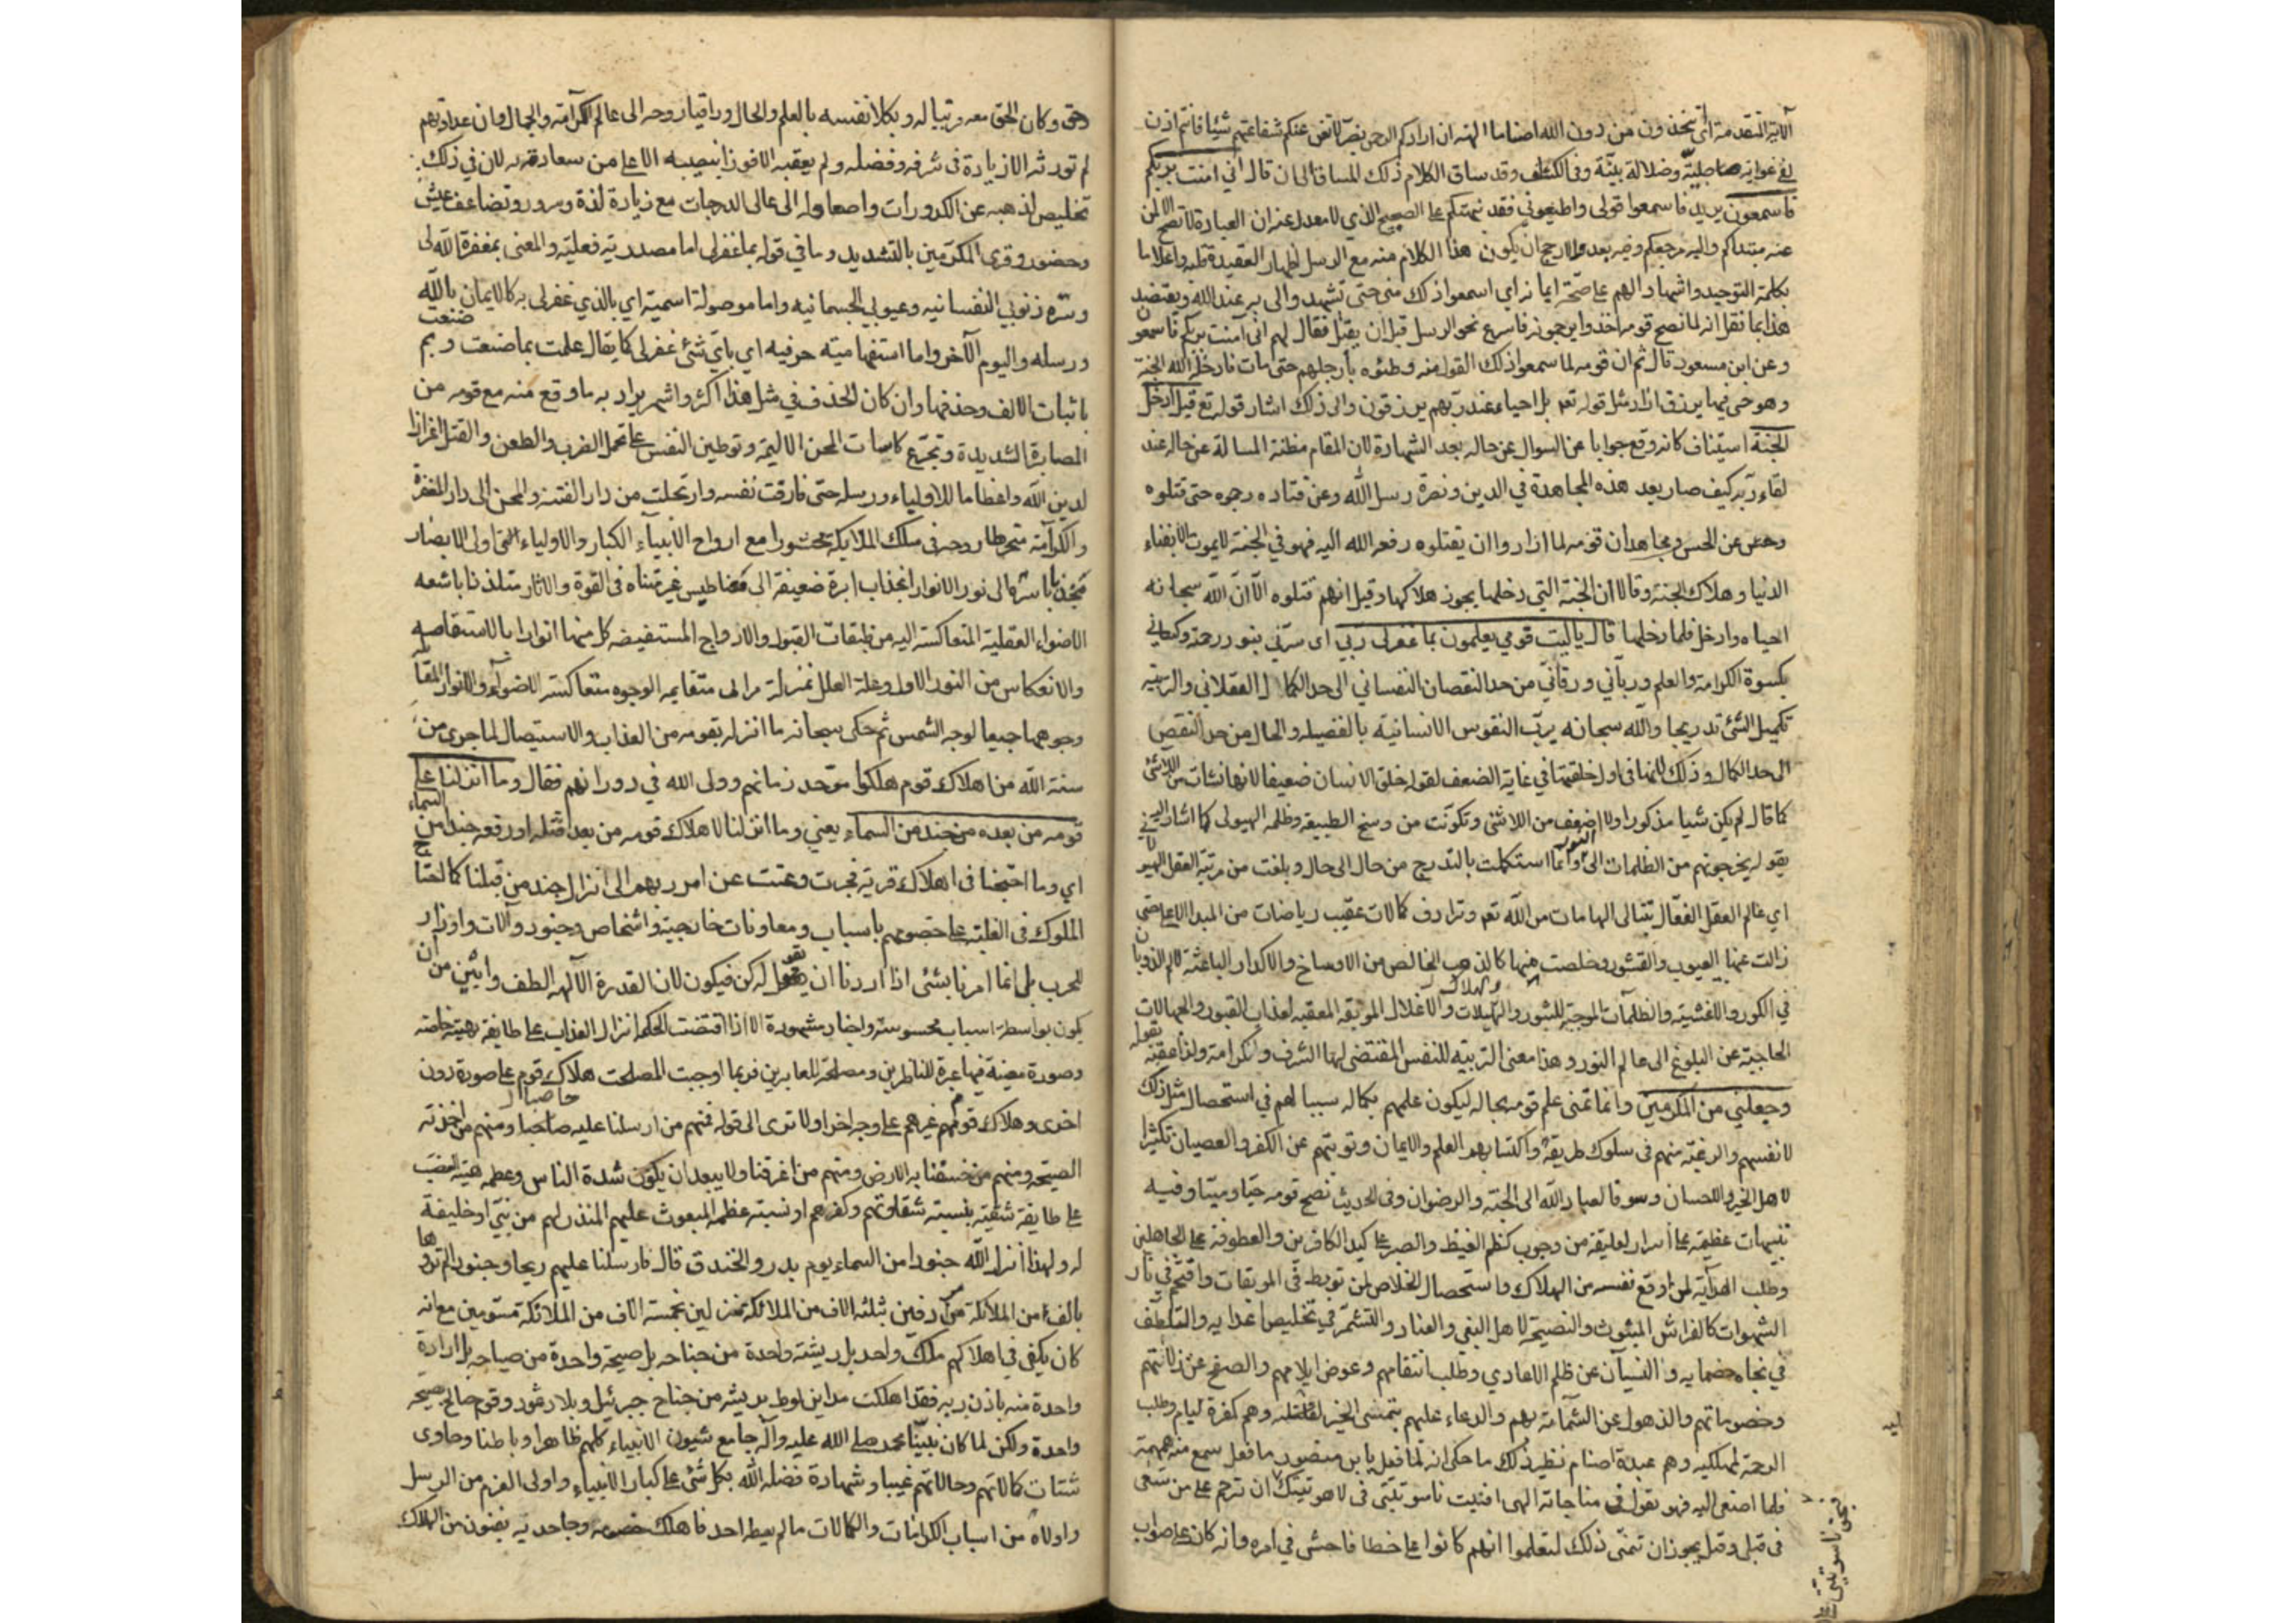 الآية المتقدمة أأتخذون من دون الله اصناما آلهة ان ارادكم الرحمن بضر لا تغن عنكم شفاعتهم شيئا فانتم اذن
لفي غواية جاهلية وضلالة بينة وفي الكشاف وقد ساق الكلام ذلك المساق الى ان قال اني امنت بربكم
فاسمعون يريد فاسمعوا قولي واطيعوني فقد نبهتكم على الصحيح الذي لا معدل عنه ان العبادة لا تصح الا لمن
عنه مبتداكم واليه مرجعكم وفيه بعد والارجح ان يكون هذا الكلام منه مع الرسل اظهارا لعقيدة قلبه واعلاما
بكلمة التوحيد واشهادا لهم على صحة ايمانه اي اسمعوا ذلك مني حتى تشهدوا لي به عند الله ويعتضد
هذا بما نقل انه لما نصح قومه اخذوا يرجمونه فاسرع نحو الرسل قبل ان يقتل فقال لهم اني آمنت بربكم فاسمعون
وعن ابن مسعود قال ثم ان قومه لما سمعوا ذلك القول منه وطئوه بأرجلهم حتى مات فادخله الله الجنة
وهو حي فيها يرزق اراد مثل قوله تعم بل احياء عند ربهم يرزقون والى ذلك اشار قوله تع قيل ادخل
الجنة استيناف كانه وقع جوابا عن السوال عن حاله بعد الشهادة لان المقام مظنة المسالة عن حاله عند
لقاء ربه كيف صار بعد هذه المجاهدة في الدين ونصرة رسل الله وعن قتاده رجموه حتى قتلوه
وعن الحسن ومجاهد ان قومه لما ارادوا ان يقتلوه رفعه الله اليه فهو في الجنة لا يموت الا بفناء
الدنيا وهلاك الجنة وقالا ان الجنة التي دخلها يجوز هلاكها وقيل انهم قتلوه الا ان الله سبحانه
احياه وادخل فلما دخلها قال يا ليت قومي يعلمون بما غفر لي ربي اي سترني بنور رحمة وكساني
بكسوة الكرامة والعلم ورباني ورقاني من حد النقصان النفساني الى حد الكمال العقلاني والتربية
تكميل الشئ تدريجا والله سبحانه يرب النفوس الانسانية بالفضيلة والحال من حد النقص
الى حد الكمال وذلك لانها في اول خلقتها في غاية الضعف لقوله خلق الانسان ضعيفا لانها نشات من اللاشئ
كما قال لم يكن شيا مذكورا ولا اضعف من اللاشئ وتكونت من وسخ الطبيعة وظلمة الهيولى كما اشار اليه في
يقوله يخرجونهم من الظلمات الى النور وانما استكملت بالتدريج من حال الى حال وبلغت من مرتبة العقل الهيولا
اي عالم العقل الفعال بتتالي الهامات من الله تعم وترادف كمالات عقيب رياضات من المبدا الاعلى حتى
زالت عنها العيوب والقشور وخلصت منها كالذهب الخالص من الاوساخ والاكدار الباعثة لالم الذوبان
في الكور والاغشية والظلمات الموجبة للثبور والويلات والهلاك والاغلال الموثقة المعقبة لعذاب القبور والجهالات
الحاجبة عن البلوغ الى عالم النور وهذا معنى التربية للنفس المقتضي لها الشرف والكرامة ولذا عقبه بقوله
وجعلني من المكرمين وانما تمنى علم قومه بحاله ليكون علمهم بكماله سببا لهم في استحصال مثل ذلك
لانفسهم والرغبة منهم في سلوك طريقة واكتسابهم العلم والايمان وتوبتهم عن الكفر والعصيان تكثيرا
لاهل الخير والاحسان وسوقا لعباد الله الى الجنة والرضوان وفي الحديث نصح قومه حيا وميتا وفيه
تنبيهات عظيمة على اسرار لطيفة من وجوب كظم الغيظ والصبر على كيد الكافرين والعطوفة على الجاهلين
وطلب الهداية لمن اوقع نفسه من الهلاك واستحصال الخلاص لمن تورط في الموبقات واقتحم في نار
الشهوات كالفراش المبثوث والنصيحة لاهل البغي والعناد والتشمر في تخليص اعدايه والتلطف
في نجاة خصمايه والنسيان عن ظلم الاعادي وطلب انتقامهم وعوض ايلامهم والصفح عن زلاتهم
وخصوماتهم والذهول عن الشماتة بهم والدعاء عليهم بتمنى الخير لقتلته وهم كفرة ليام وطلب
الرحمة لمهلكيه وهم عبدة اصنام نظير ذلك ما حكى انه لما فعل بابن منصور ما فعل سمع منه همهمة
فلما اصغى اليه فهو يقول في مناجاته الهي افنيت ناسوتيتي في لاهوتيتك ان ترحم على من سعى
في قتلي وقيل يجوز ان تمنى ذلك ليعلموا انهم كانوا على خطا فاحش في امره وانه كان على صواب
بحق ناسوتيتي على
حق وكان الحق معه مرتبا له ومكملا نفسه بالعلم والحال وراقيا روحه الى عالم الكرامة والجمال وان عداوتهم
لم تورثه الا زيادة في شرفه وفضله ولم يعقبه الا فوزا بنصيبه الاعلى من سعادته لان في ذلك
تخليص لذهبه عن الكدورات واصعاد له الى عالي الدرجات مع زيادة لذة وسرور وتضاعف عيش
وحضور وقرئ المكرمين بالتشديد وما في قوله بما غفر لي اما مصدرية فعلية والمعنى بمغفرة الله لي
وستره ذنوبي النفسانية وعيوبي الجسمانيه واما موصولة اسمية اي بالذي غفر لي به كالايمان بالله
ورسله واليوم الآخر واما استفهامية حرفيه اي باي شئ غفر لي كما يقال علمت بما صنعت وبم صنعت
باثبات الالف وحذفها وان كان الحذف في مثل هذا اكثر واشهر يراد به ما وقع منه مع قومه من
المصابرة الشديدة وتجرع كاسات المحن الاليمة وتوطين النفس على تحمل الضرب والطعن والقتل اعزازا
لدين الله واعظاما للاولياء ورسله حتى فارقت نفسه وارتحلت من دار الفتنة والمحن الى دار المغفرة
والكرامة منخرطا روحه في سلك الملايكة محشورا مع ارواح الانبياء الكبار والاولياء اولي الابصار
منجذبا باسره الى نور الانوار انجذاب ابرة ضعيفة الى مغناطيس غير متناه في القوة والاثار متلذذا باشعة
الاضواء العقلية المتعاكسة اليه من طبقات العقول والارواح المستفيضه كل منها انوارا بالاستقامه
والانعكاس من النور الاول وعلة العلل بمنزلة مرائى متقابله الوجوه متعاكسة الاضواء والانوار المقابله
وجوهها جميعا لوجه الشمس ثم حكى سبحانه ما انزله بقومه من العذاب والاستيصال لما جرى من
سنة الله من اهلاك قوم هلكوا موحد زمانهم وولي الله في دورانهم فقال وما انزلنا على
قومه من بعده من جند من السماء يعني وما انزلنا لاهلاك قومه من بعد قتله او رفعه جندا من السماء
اي وما احتجنا في اهلاك قرية فجرت وعتت عن امر ربهم الى انزال جند من قبلنا كما احتاج
الملوك في الغلبة على خصومهم باسباب ومعاونات خارجية واشخاص وجنود وآلات واوزار
للحرب بل انما امرنا بشئ اذا اردنا ان نقول له كن فيكون لان القدرة الالهية الطف وابين من ان
يكون بواسطة اسباب محسوسة واجناد مشهودة الا اذا اقتضت الحكمة انزال العذاب على طايفة بهيئة خاصة
وصورة معينة فيها عبرة للناظرين ومصلحة للعابرين فربما اوجبت المصلحت هلاك قوم على صورة دون
اخرى وهلاك قوم غيرهم على وجه اخر اولا ترى الى قوله فمنهم من ارسلنا عليه حاصبا ومنهم من اخذته
الصيحة ومنهم من خسفنا به الارض ومنهم من اغرقنا ولا يبعد ان يكون شدة الباس وعظم هيئة الغضب
على طايفة شقية بنسبة شقاوتهم وكفرهم او نسبة عظمة المبعوث عليهم المنذر لهم من نبي او خليفة
له ولهذا انزل الله جنودا من السماء يوم بدر والخندق قال فارسلنا عليهم ريحا وجنودا لم تروها
بالف من الملائكة مردفين بثلثة الاف من الملائكة منزلين بخمسة الاف من الملائكة مسومين مع انه
كان يكفي في اهلاكهم ملك واحد بل ريشة واحدة من جناحه بل صيحة واحدة من صياحه بل ارادة
واحدة منه باذن ربه فقد اهلكت مداين لوط بريشه من جناح جبرئيل وبلاد ثمود وقوم صالح بصيحة
واحدة ولكن لما كان نبينا محمد صلى الله عليه وآله جامع شيون الانبياء كلهم ظاهرا وباطنا وحاوى
شتات كمالاتهم وحالاتهم غيبا وشهادة فضله الله بكل شئ على كبار الانبياء واولى العزم من الرسل
واولاه من اسباب الكرامات والكمالات ما لم يعطه احد فاهلك خصومه وجاحديه بفنون من الهلاك